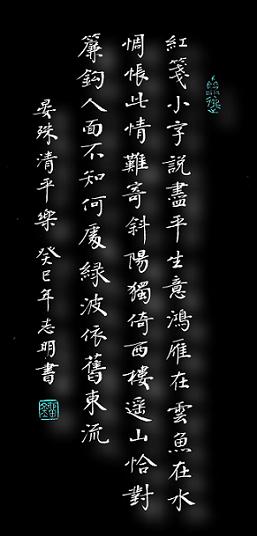 紅箋小字說盡平生意鴻雁在雲魚在水
惆悵此情難寄斜陽獨倚西樓遥山恰對
簾鈎人面不知何處緑波依舊東流
晏殊清平樂 癸巳年志明書